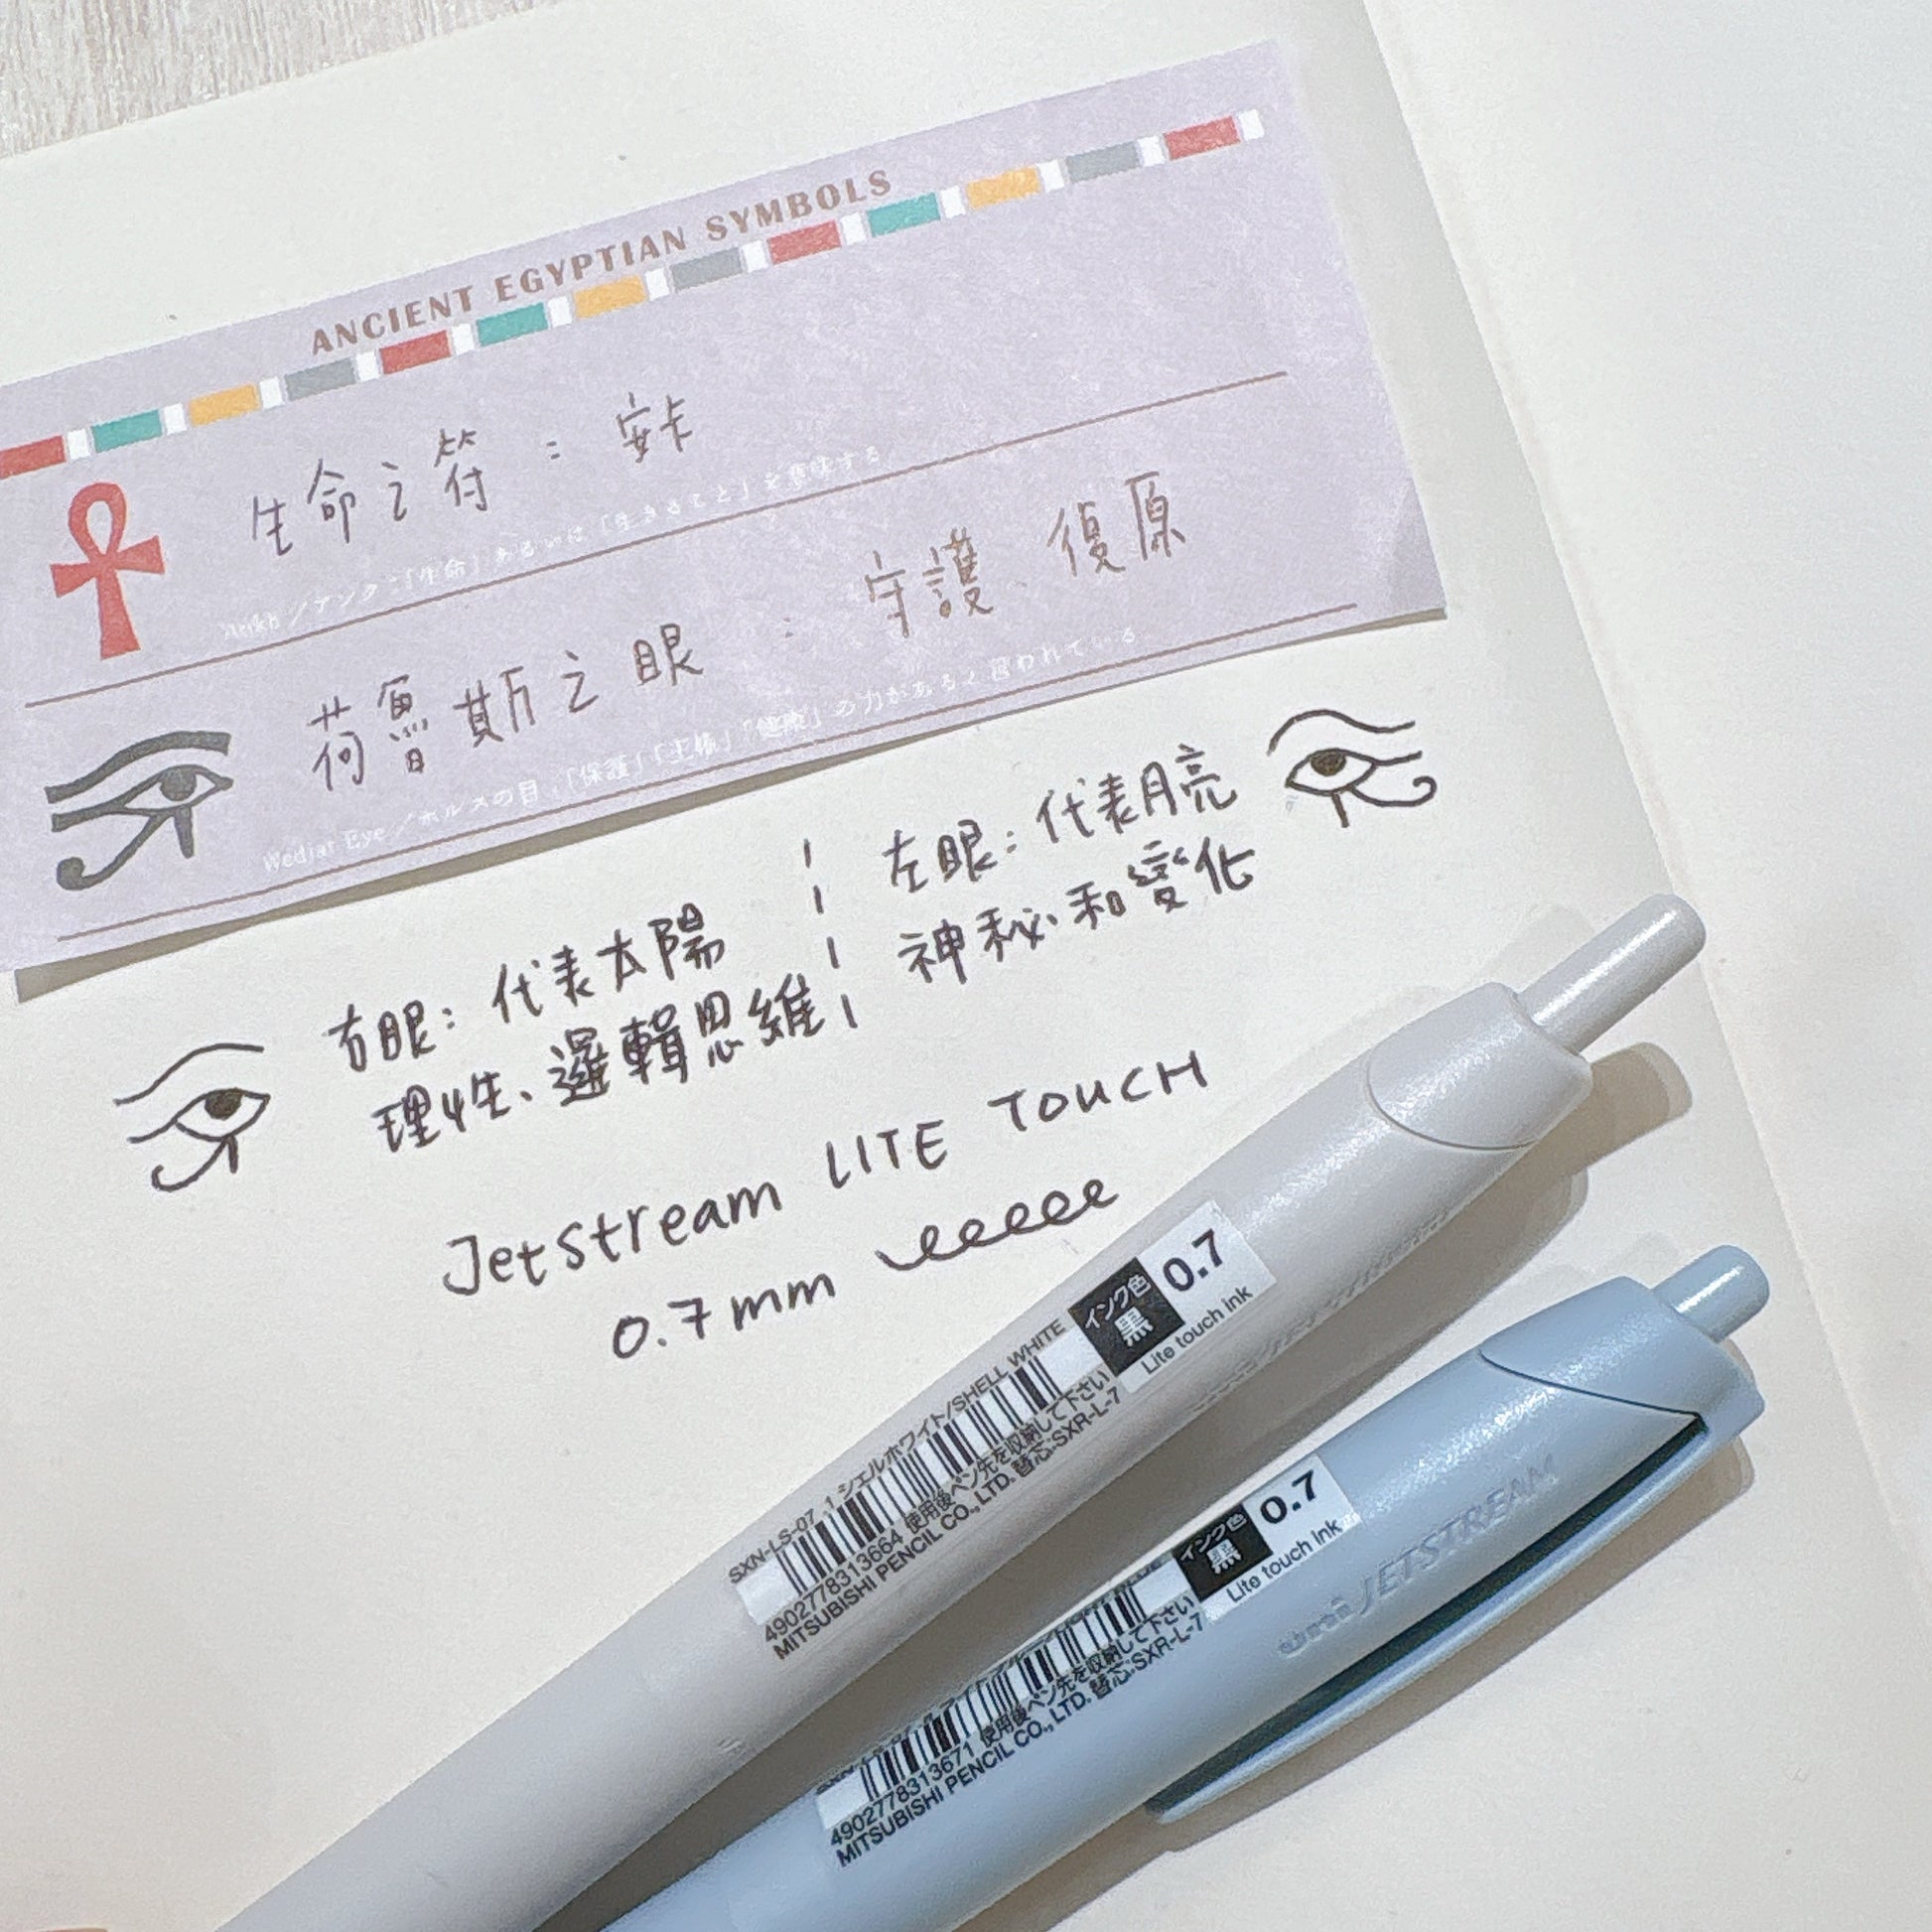 ANCIENT EGYPTIAN SYMBOLS
生命之符：安卡
Ankh／アンク：「生命」あるいは「生きること」を意味する
荷魯斯之眼：守護 復原
Wedjat Eye／ホルスの目：「保護」「」「」の力があると言われている
左眼：代表月亮
神秘和變化
右眼：代表太陽
理性、邏輯思維
Jetstream LITE TOUCH
0.7mm
インク色
黒
0.7
Lite touch ink
SXN-LS-07 .1 シェルホワイト/SHELL WHITE
4902778313664 使用後ペン先を収納して下さい
MITSUBISHI PENCIL CO.,LTD. 替芯:SXR-L-7
インク色
黒
0.7
Lite touch ink
4902778313671 使用後ペン先を収納して下さい
MITSUBISHI PENCIL CO.,LTD. 替芯:SXR-L-7
uni JETSTREAM